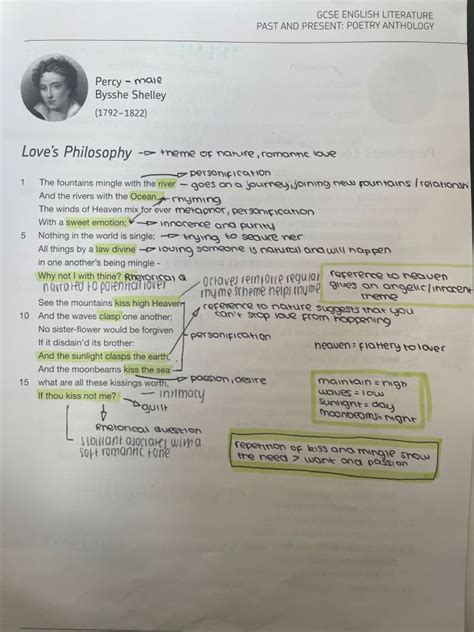 GCSE ENGLISH LITERATURE
PAST AND PRESENT: POETRY ANTHOLOGY
Percy - male
Bysshe Shelley
(1792–1822)
Love's Philosophy → theme of nature, romantic love
→ personification
1 The fountains mingle with the river – goes on a journey, joining new fountains / relationsh
And the rivers with the Ocean, → rhyming
The winds of Heaven mix for ever metaphor, personification
With a sweet emotion; → innocence and purity
5 Nothing in the world is single; → trying to secure her
All things by a law divine → loving someone is natural and will happen
in one another's being mingle -
Why not I with thine? Rhetorical Q
narrated to potential lover
octaves reinforce regular
rhyme scheme helps rhyme
reference to heaven
gives an angelic/innocent
theme
See the mountains kiss high Heaven
10 And the waves clasp one another;
reference to nature suggests that you
can't stop love from happening
No sister-flower would be forgiven
If it disdain'd its brother:
personification
heaven = flattery to lover
And the sunlight clasps the earth,
And the moonbeams kiss the sea
→ passion, desire
15 what are all these kissings worth,
If thou kiss not me? – intimacy
→ guilt
maintain = high
waves = low
sunlight = day
moonbeams = night
Rhetorical question
sibilant associates with a
soft romantic tone
repetition of kiss and mingle show
the need > want and passion